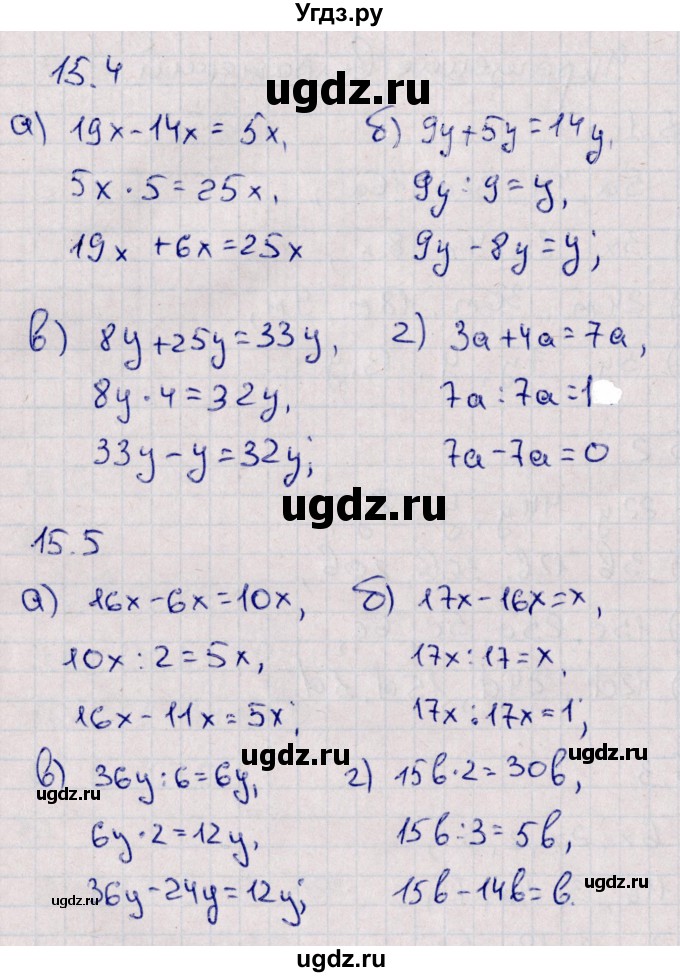 Угдз.ру
15.4
ugdz.ru
а) 19x-14x=5x,
5x·5=25x,
19x+6x=25x
б) 9y+5y=14y,
9y:9=y,
9y-8y=y;
в) 8y+25y=33y,
8y·4=32y,
33y-y=32y;
г) 3a+4a=7a,
7a:7a=1
7a-7a=0
ugdz.ru
15.5
а) 16x-6x=10x,
10x:2=5x,
16x-11x=5x;
б) 17x-16x=x,
17x:17=x,
17x:17x=1;
ugdz.ru
ugdz.ru
ugdz.ru
в) 36y:6=6y,
6y·2=12y,
36y-24y=12y;
г) 15b·2=30b,
15b:3=5b,
15b-14b=b.
ugdz.ru
ugdz.ru
ugdz.ru